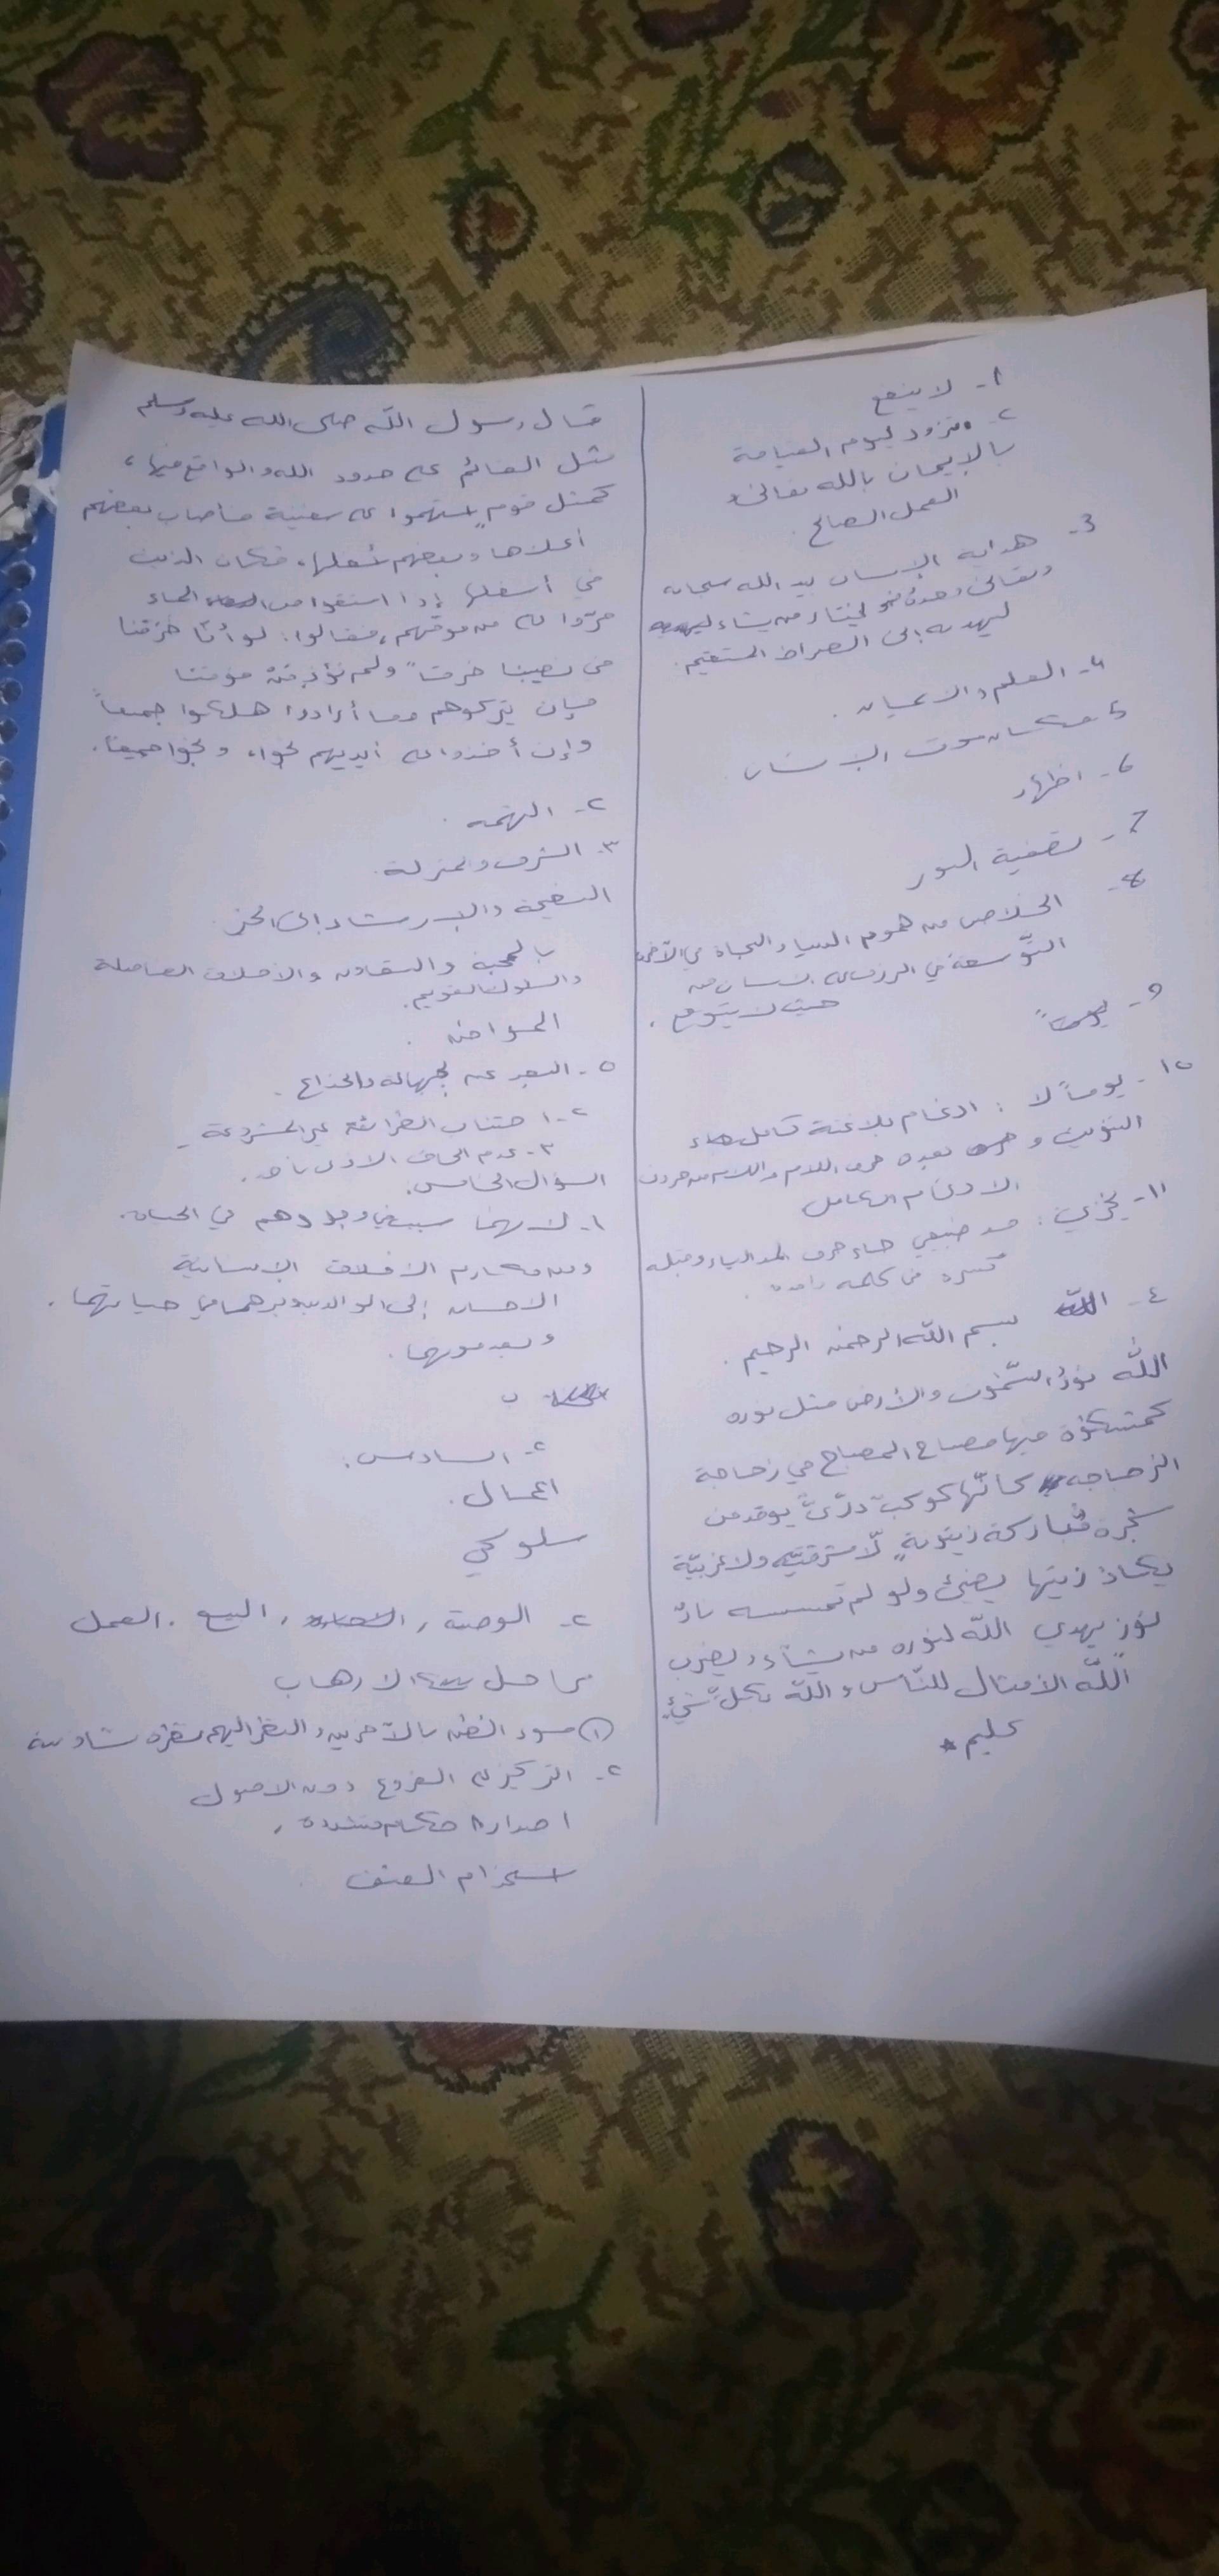 ١- لا ينفع
٢- نتزود ليوم القيامة
بالإيمان بالله تعالى و
العمل الصالح.
3- هداية الإنسان بيد الله سبحانه
وتعالى وحده فهو يختار من يشاء
ليهديه إلى الصراط المستقيم.
4- العلم والايمان.
5- مكان موت الإنسان.
6- اظهار
7- تصفية النور
8- الخلاص من هموم الدنيا والنجاة في الآخرة
التوسعة في الرزق من
حيث لا يتوقع.
9- يوماً
١٠- يوماً لا : ادغام بلا غنة كامل جاء
التنوين و بعده حرف اللام واللام من حروف
الادغام الكامل
١١- يخزي : مد طبيعي جاء حرف المد الياء وقبله
كسره في كلمه واحده.
٤- بسم الله الرحمن الرحيم.
الله نورُ السّمٰوٰت والأرض مثل نوره
كمشكوٰة فيها مصباح المصباح في زجاجة
الزجاجه كانّها كوكبٌ درّيٌّ يوقد من
شجرة مُباركة زيتونةٍ لّا شرقيّةٍ ولا غربيّة
يكادُ زيتها يضيئ ولو لم تمسسه نارٌ
نورٍ يهدي اللّه لنوره من يشآء ويضرب
اللّه الأمثال للنّاس و اللّه بكلّ شيءٍ
عليم *
قال رسول اللّه صلى الله عليه وسلم
مثل القائم على حدود الله والواقع فيها،
كمثل قومٍ استهموا على سفينة فأصاب بعضهم
أعلاها وبعضهم أسفلها، فكان الذين
في أسفلها إذا استقوا من الماء
مرّوا على من فوقهم، فقالوا: لو أنّا خرقنا
في نصيبنا خرقاً ولم نؤذ من فوقنا
فإن يتركوهم وما أرادوا هلكوا جميعاً
وإن أخذوا على أيديهم نجوا، ونجوا جميعاً.
٢- التهمه.
٣- الشرف والمنزلة.
النصيحة والإرشاد إلى الخير.
بالمحبة والتعاون والأخلاق الفاضلة
والسلوك القويم.
المواطنه.
٥- البعد عن الجهالة والخداع.
٢- اجتناب الطرائق غير المشروعة.
٣- عدم الحاق الاذى
السؤال الخامس:
١- لانهما سبب في وجودهم في الحياة.
ومن مكارم الأخلاق الإنسانية
الاحسان إلى الوالدين وبرهما في حياتهما.
وبعد موتهما.
٢- السادس:
اعمال.
سلوكي
٢- الوصية، البيع، العمل
مراحل الارهاب
① سوء الظن بالآخرين والنظر اليهم نظره تشاؤمية
٢- التركيز على الفروع دون الاصول
اصدار احكام متشدده.
استخدام العنف